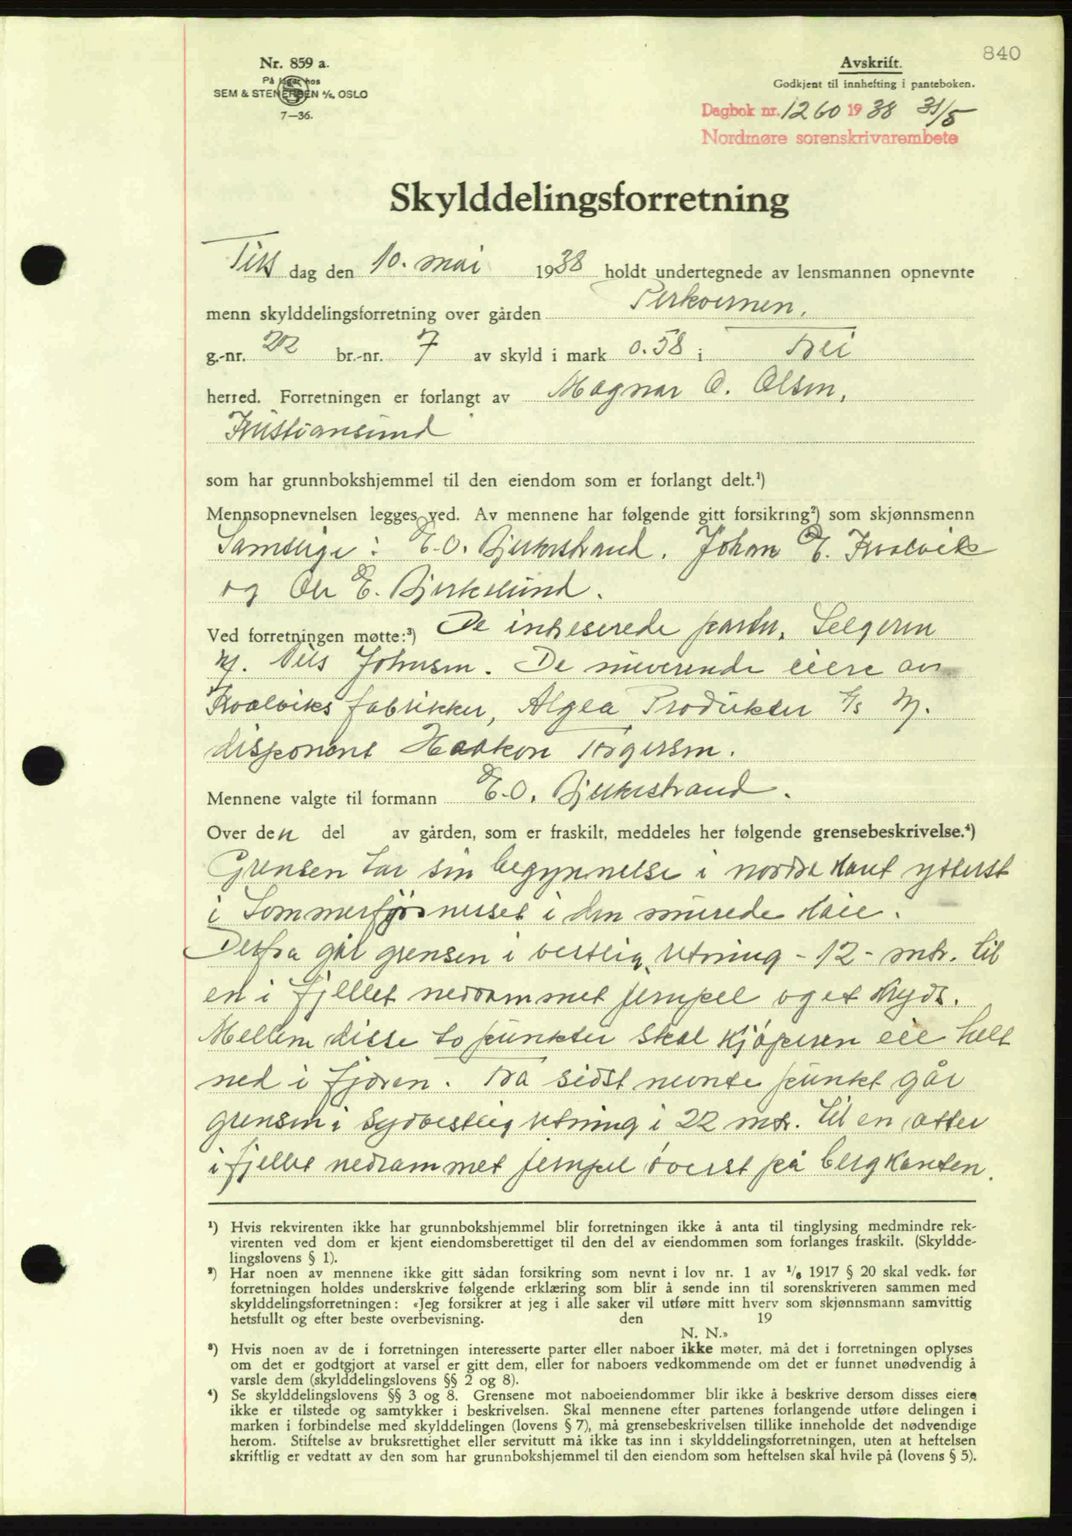 840
Nr. 859 a.
På lager hos
SEM & STENERSEN A/S, OSLO
7—36.
Avskrift.
Godkjent til innhefting i panteboken.
Dagbok nr. 1260 1938 31/5
Nordmøre sorenskrivarembete
Skylddelingsforretning
Tirs dag den 10. mai 1938 holdt undertegnede av lensmannen opnevnte
menn skylddelingsforretning over gården
g.-nr. 22 br.-nr. 7 av skyld i mark 0.58 i Frei
herred. Forretningen er forlangt av Magnar O. Olsen,
Kristiansund
som har grunnbokshjemmel til den eiendom som er forlangt delt.¹)
Mennsopnevnelsen legges ved. Av mennene har følgende gitt forsikring²) som skjønnsmenn
Samtlige: E.O. Bjerkestrand. Johan E. Kvalvik
og Ole E. Bjerkelund.
Ved forretningen møtte:³) De interesserede parter, Selgeren
v/. Nils Johnsen. De nuverende eiere av
Kvalviks fabrikker, Algea Produkter A/s v/.
disponent Haakon Torgersen.
Mennene valgte til formann E.O. Bjerkestrand.
Over den del av gården, som er fraskilt, meddeles her følgende grensebeskrivelse.⁴)
Grensen tar sin begynnelse i nordre kant ytterst
i Sommerfjøsnesset i den murede kaie.
Derfra går grensen i vestlig retning - 12 - mtr. til
en i fjellet nedrammet jernpel og et kryds.
Mellem disse to punkter skal kjøperen eie helt
ned i fjæren. Fra sidst nevnte punkt går
grensen i sydvestlig retning i 22 mtr. til en atter
i fjellet nedrammet jernpel øverst på bergkanten.
¹) Hvis rekvirenten ikke har grunnbokshjemmel blir forretningen ikke å anta til tinglysing medmindre rek-
virenten ved dom er kjent eiendomsberettiget til den del av eiendommen som forlanges fraskilt. (Skyldde-
lingslovens § 1).
²) Har noen av mennene ikke gitt sådan forsikring som nevnt i lov nr. 1 av 1/6 1917 § 20 skal vedk. før
forretningen holdes underskrive følgende erklæring som blir å sende inn til sorenskriveren sammen med
skylddelingsforretningen: «Jeg forsikrer at jeg i alle saker vil utføre mitt hverv som skjønnsmann samvittig
hetsfullt og efter beste overbevisning. den 19
N. N.»
³) Hvis noen av de i forretningen interesserte parter eller naboer ikke møter, må det i forretningen oplyses
om det er godtgjort at varsel er gitt dem, eller for naboers vedkommende om det er funnet unødvendig å
varsle dem (skylddelingslovens §§ 2 og 8).
⁴) Se skylddelingslovens §§ 3 og 8. Grensene mot naboeiendommer blir ikke å beskrive dersom disses eiere
ikke er tilstede og samtykker i beskrivelsen. Skal mennene efter partenes forlangende utføre delingen i
marken i forbindelse med skylddelingen (lovens § 7), må grensebeskrivelsen tillike inneholde det nødvendige
herom. Stiftelse av bruksrettighet eller servitutt må ikke tas inn i skylddelingsforretningen, uten at heftelsen
skriftlig er vedtatt av den som har grunnbokshjemmel til den eiendom som heftelsen skal hvile på (lovens § 5).